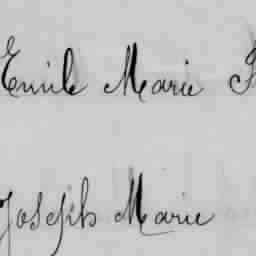 Emile Marie
Joseph Marie